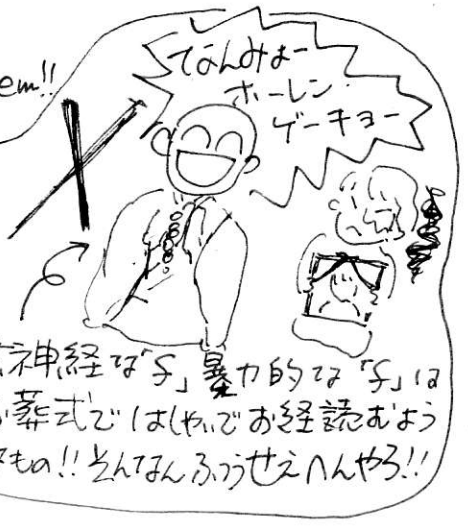 em!!
なんみょー
ホーレン
ゲーキョー
神経な「字」暴力的な「字」は
お葬式ではしゃいでお経読むよう
なもの!!そんなんふつうせえへんやろ!!